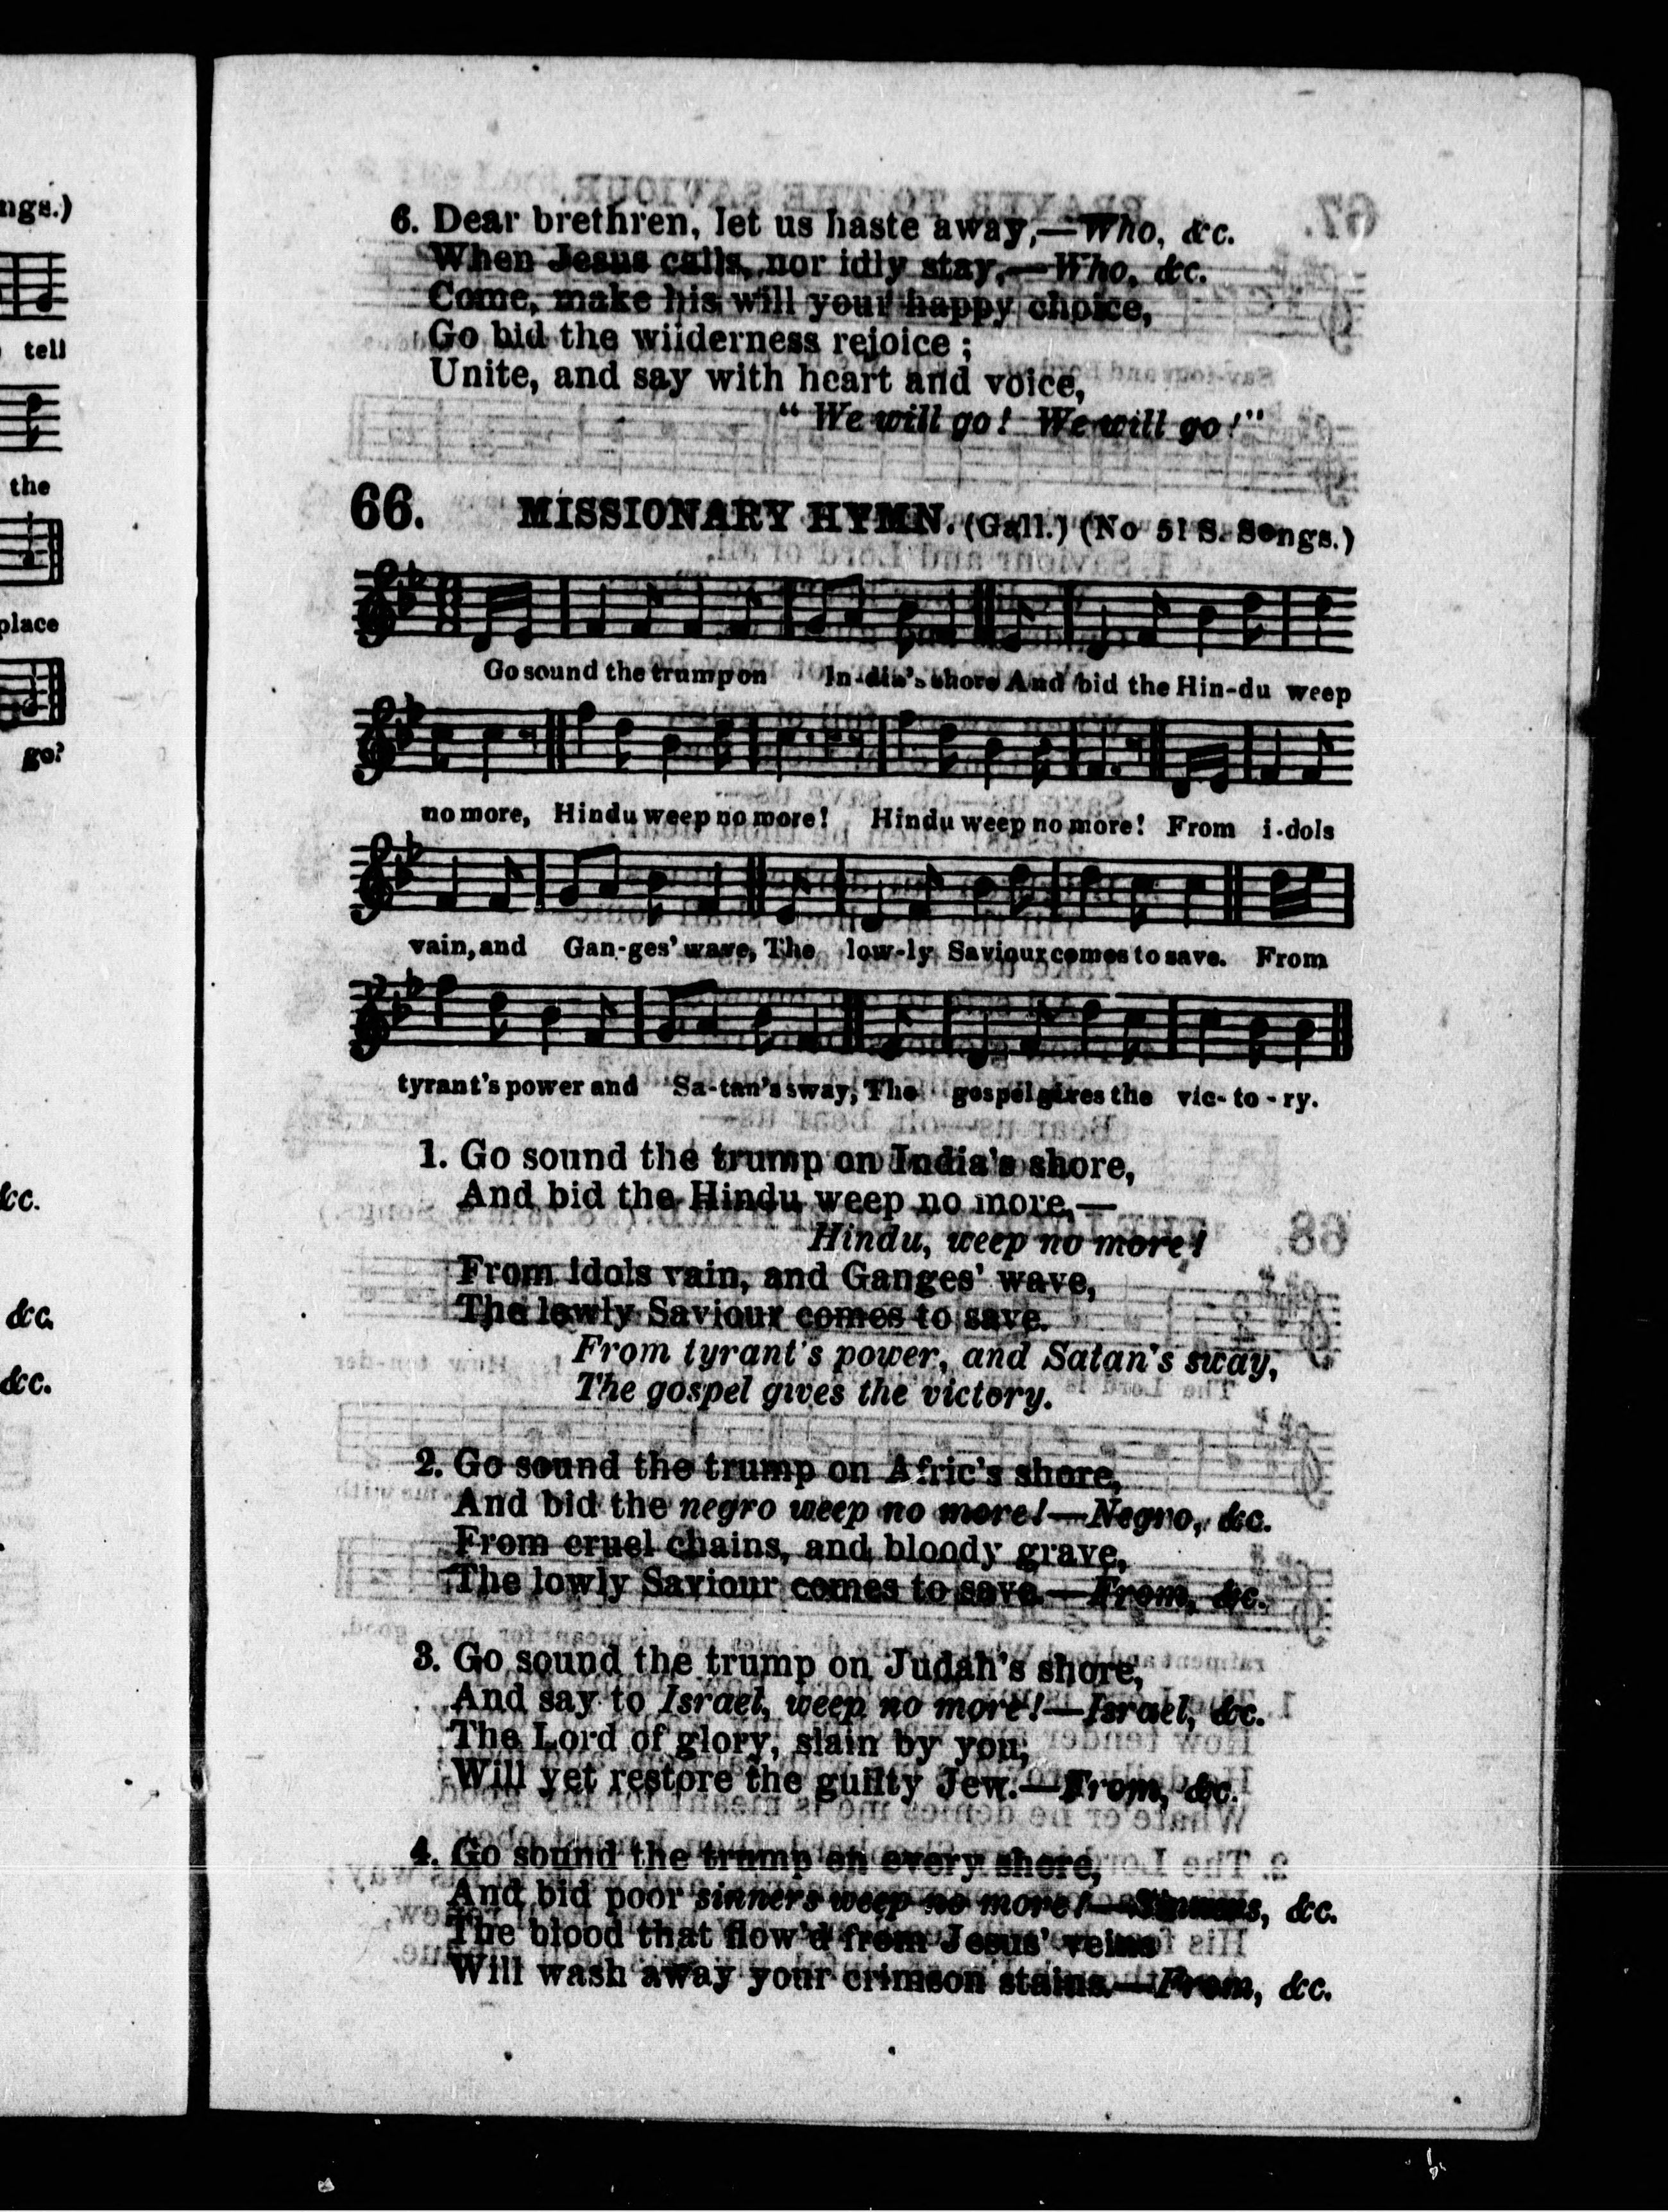 ngs.)
tell
the
place
go?
&c.
&c.
&c.
6. Dear brethren, let us haste away,—Who, &c.
When Jesus calls, nor idly stay,—Who, &c.
Come, make his will your happy choice,
Go bid the wilderness rejoice ;
Unite, and say with heart and voice,
“ We will go! We will go!”
66. MISSIONARY HYMN. (Gall.) (No 51 S. Songs.)
Go sound the trump on In-dia's shore And bid the Hin-du weep
no more, Hindu weep no more! Hindu weep no more! From i-dols
vain, and Gan-ges' wave, The low-ly Saviour comes to save. From
tyrant's power and Sa-tan's sway, The gospel gives the vic-to-ry.
1. Go sound the trump on India's shore,
And bid the Hindu weep no more,—
Hindu, weep no more!
From idols vain, and Ganges' wave,
The lowly Saviour comes to save.
From tyrant's power, and Satan's sway,
The gospel gives the victory.
2. Go sound the trump on Afric's shore,
And bid the negro weep no more!—Negro, &c.
From cruel chains, and bloody grave,
The lowly Saviour comes to save.—From, &c.
3. Go sound the trump on Judah's shore,
And say to Israel, weep no more!—Israel, &c.
The Lord of glory, slain by you,
Will yet restore the guilty Jew.—From, &c.
4. Go sound the trump on every shore,
And bid poor sinners weep no more!—Sinners, &c.
The blood that flow'd from Jesus' veins
Will wash away your crimson stains.—From, &c.